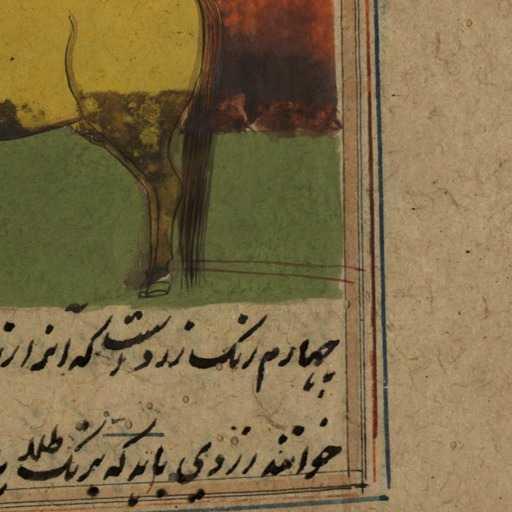 چهارم رنگ زرد است که آنرا زر
خوانند و زردی باید که برنگ طلا